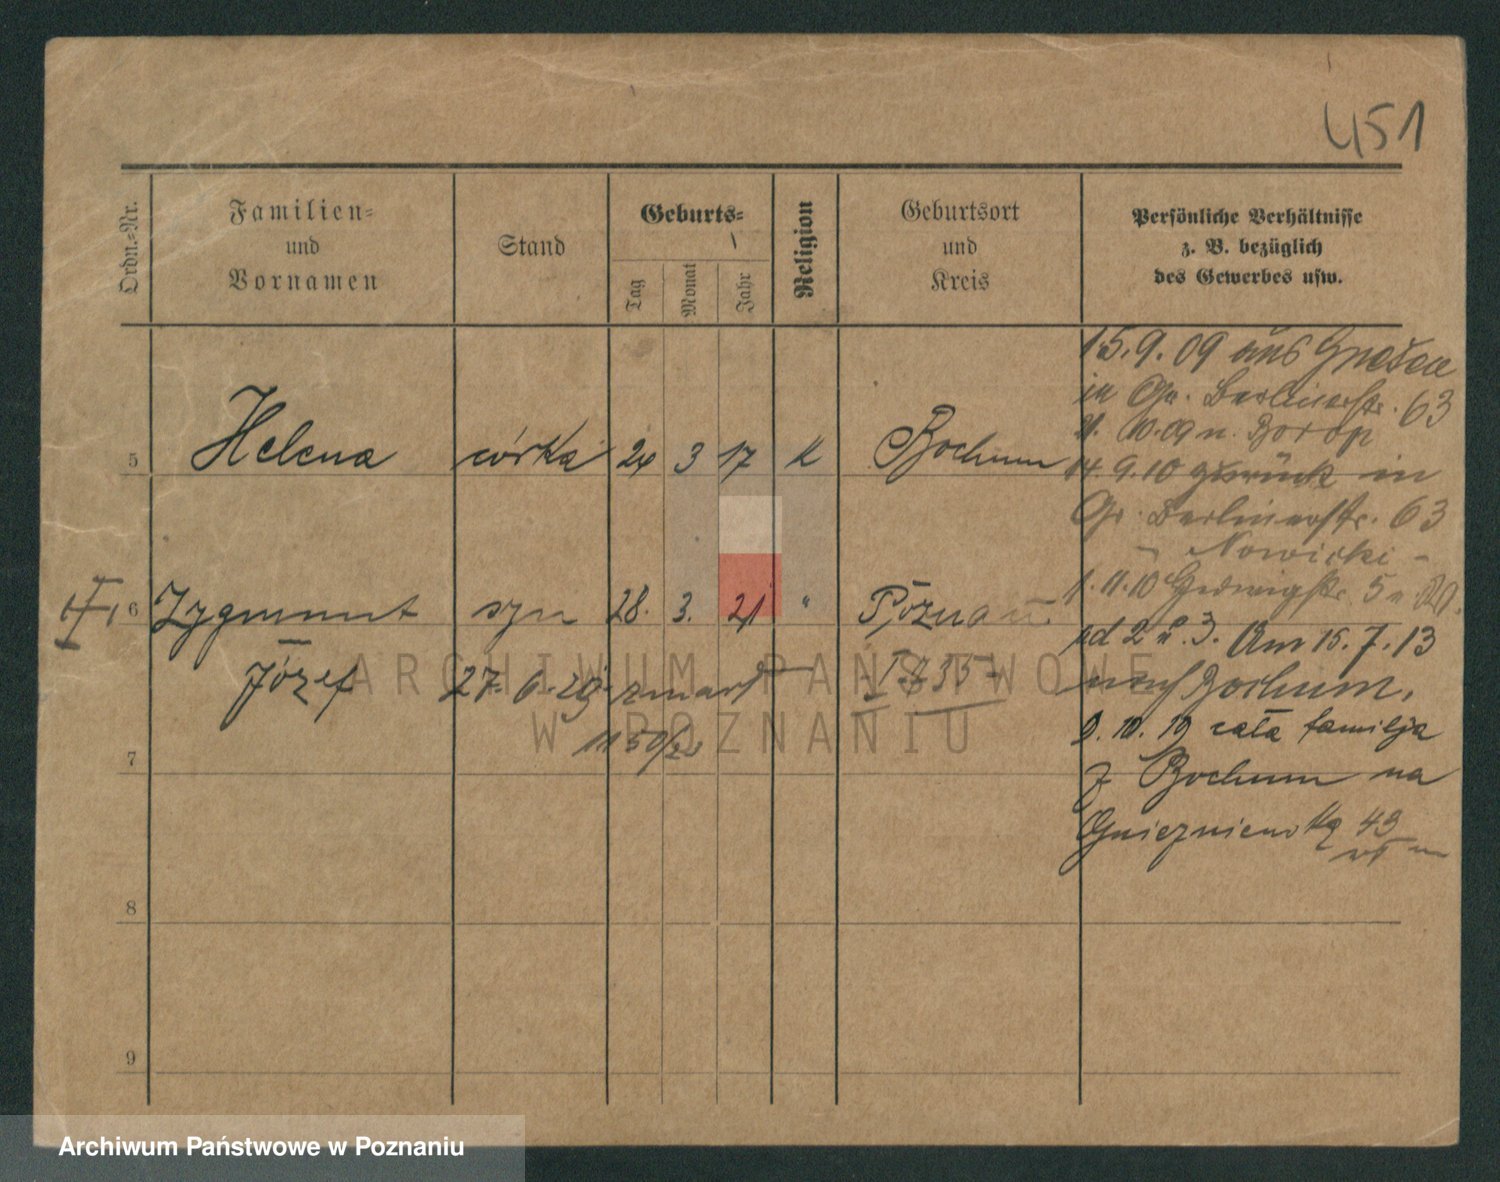 451
Ordn.-Nr.
Familien-
und
Vornamen
Stand
Geburts-
Tag
Monat
Jahr
Religion
Geburtsort
und
Kreis
Persönliche Verhältnisse
z. B. bezüglich
des Gewerbes usw.
5 Helena córka 24 3 17 K Bochum
6 Zygmunt syn 28. 3. 21 " Poznań.
Józef 27. 6. 29. zmarł
7
8
9
15. 9. 09 aus Gnesen
in Gr. Berlinerstr. 63
10. 09 n.
14. 9. 10 zurück in
Gr. Berlinerstr. 63
- Nowicki -
1. 11. 10 Hedwigstr. 5
2 u. 3. Am 15. 7. 13
nach Bochum.
9. 10. 19 cała familja
z Bochum na
Gnieznienska 43
ARCHIWUM PAŃSTWOWE
W POZNANIU
Archiwum Państwowe w Poznaniu